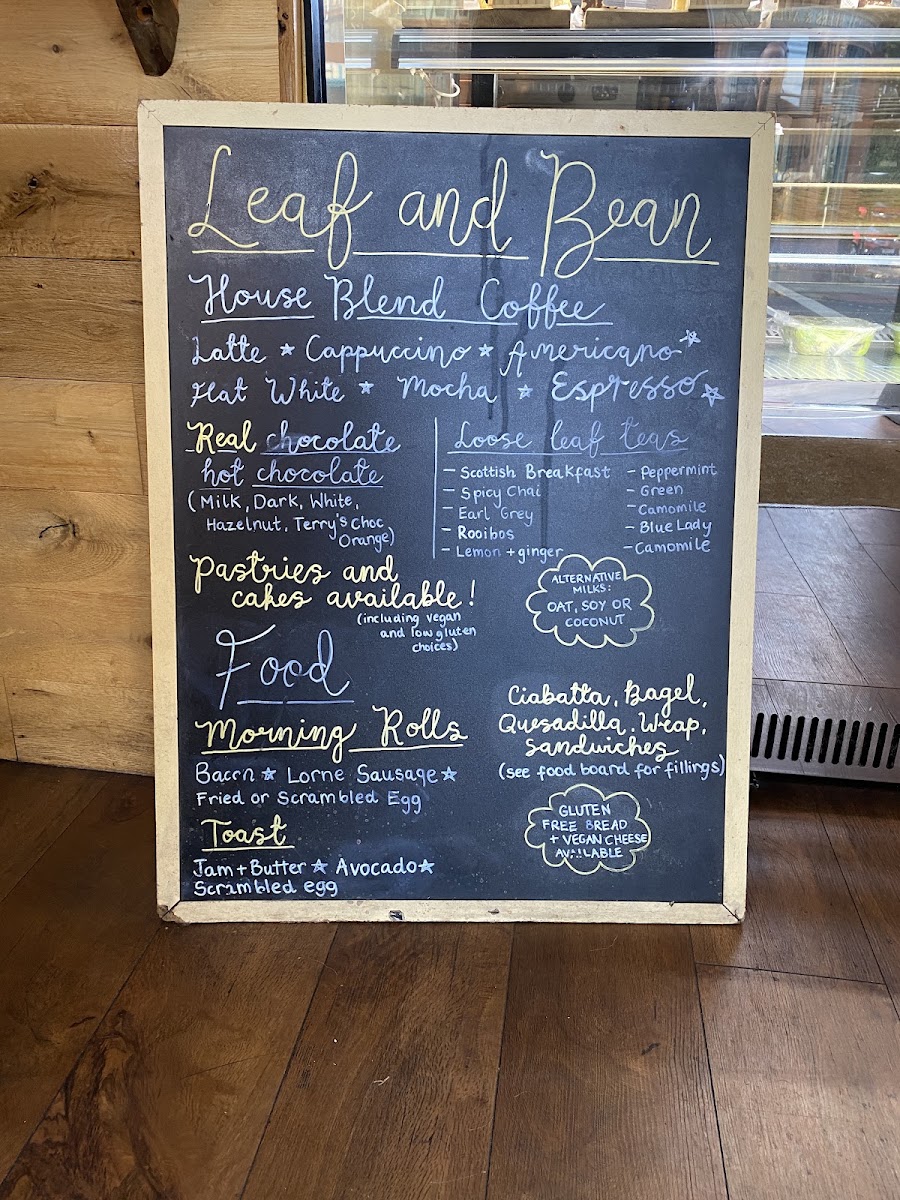 Leaf and Bean
House Blend Coffee
Latte ★ Cappuccino ★ Americano ★
Flat White ★ Mocha ★ Espresso ★
Real chocolate
hot chocolate
(Milk, Dark, White,
Hazelnut, Terry's Choc
Orange)
Loose leaf teas
- Scottish Breakfast
- Spicy Chai
- Earl Grey
- Rooibos
- Lemon + ginger
- Peppermint
- Green
- Camomile
- Blue Lady
- Camomile
Pastries and
cakes available!
(including vegan
and low gluten
choices)
ALTERNATIVE
MILKS:
OAT, SOY OR
COCONUT
Food
Morning Rolls
Bacon ★ Lorne Sausage ★
Fried or Scrambled Egg
Toast
Jam + Butter ★ Avocado ★
Scrambled egg
Ciabatta, Bagel,
Quesadilla, Wrap,
Sandwiches
(see food board for fillings)
GLUTEN
FREE BREAD
+ VEGAN CHEESE
AVAILABLE